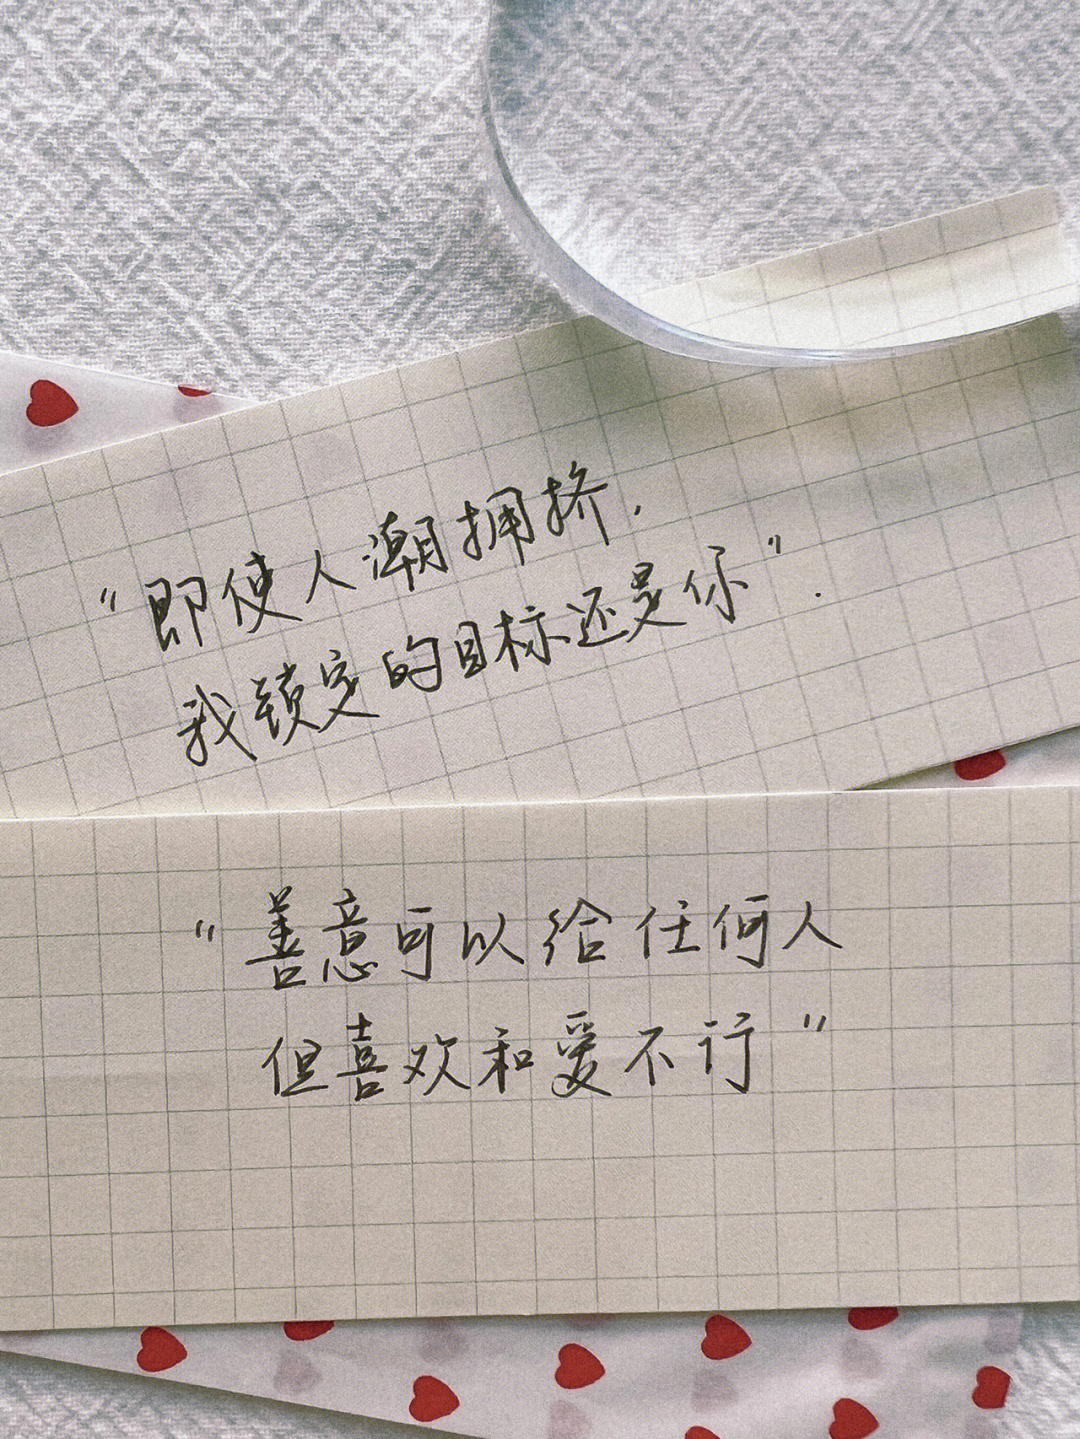 "即使人潮拥挤,
我锁定的目标还是你".
"善意可以给任何人
但喜欢和爱不行"